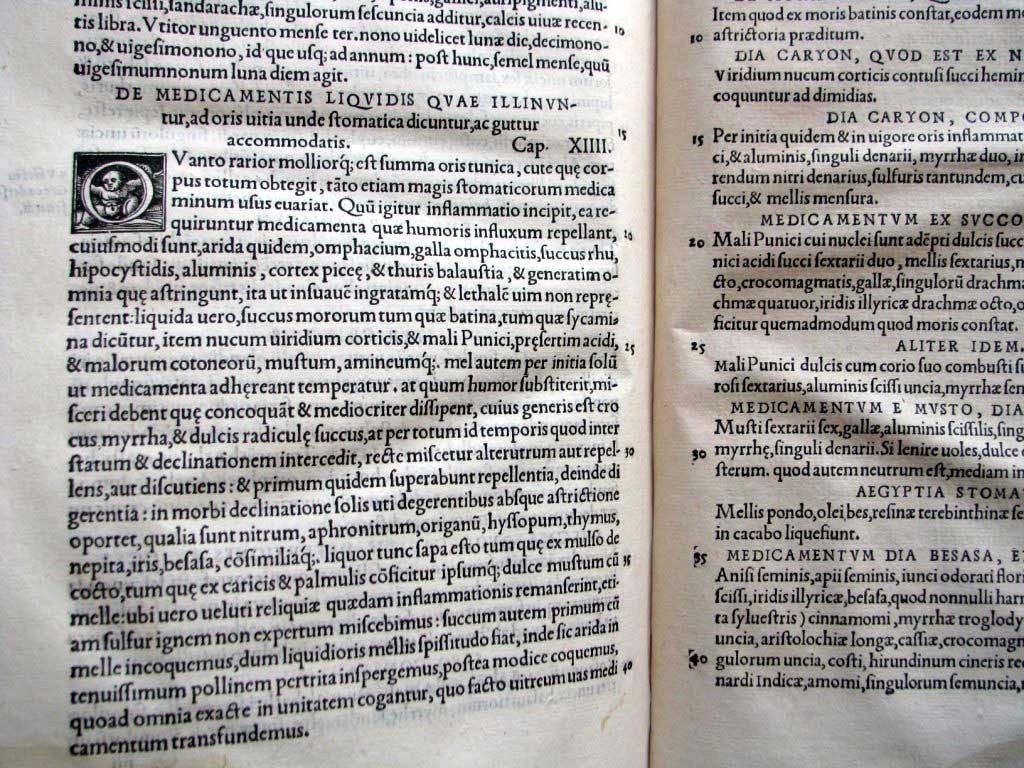 tis libra. Vtitor unguento mense ter. nono uidelicet lunæ die, decimono-
no, & uigesimonono, id que usq; ad annum: post hunc, semel mense, quũ
uigesimumnonum luna diem agit.
DE MEDICAMENTIS LIQVIDIS QVAE ILLINVN-
tur, ad oris uitia unde stomatica dicuntur, ac guttur
accommodatis. Cap. XIIII.
QVanto rarior molliorq; est summa oris tunica, cute quę cor-
pus totum obtegit, tãto etiam magis stomaticorum medica
minum usus euariat. Quũ igitur inflammatio incipit, ea re-
quiruntur medicamenta quæ humoris influxum repellant,
cuiusmodi sunt, arida quidem, omphacium, galla omphacitis, succus rhu,
hipocystidis, aluminis, cortex piceę, & thuris balaustia, & generatim o-
mnia quę astringunt, ita ut insuauē ingratamq; & lethalē uim non repre-
sentent: liquida uero, succus mororum tum quæ batina, tum quæ sycami-
na dicũtur, item nucum uiridium corticis, & mali Punici, pręsertim acidi,
& malorum cotoneorũ, mustum, amineumq;. mel autem per initia solũ
ut medicamenta adhęreant temperatur. at quum humor substiterit, mi-
sceri debent quę concoquãt & mediocriter dissipent, cuius generis est cro
cus, myrrha, & dulcis radiculę succus, at per totum id temporis quod inter
statum & declinationem intercedit, recte miscetur alterutrum aut repel-
lens, aut discutiens: & primum quidem superabunt repellentia, deinde di
gerentia: in morbi declinatione solis uti degerentibus absque astrictione
oportet, qualia sunt nitrum, aphronitrum, origanũ, hyssopum, thymus,
nepita, iris, besasa, cõsimiliaq;. liquor tunc sapa esto tum quę ex mulso de
cocto, tum quę ex caricis & palmulis cõficitur ipsumq; dulce mustum cũ
melle: ubi uero ueluri reliquiæ quædam inflammationis remanserint, eti-
am sulfur ignem non expertum miscebimus: succum autem primum cũ
melle incoquemus, dum liquidioris mellis spissitudo fiat, inde sic arida in
tenuissimum pollinem pertrita inspergemus, postea modice coquemus,
quoad omnia exacte in unitatem cogantur, quo facto uitreum uas medi
camentum transfundemus.
10
15
20
25
30
35
40
Item quod ex moris batinis constat, eodem
10 astrictoria præditum.
DIA CARYON, QVOD EST EX
Viridium nucum corticis contusi succi
coquuntur ad dimidias.
DIA CARYON,
15 Per initia quidem & in uigore oris
ci, & aluminis, singuli denarii, myrrhæ duo,
rendum nitri denarius, sulfuris tantundem,
succi, & mellis mensura.
MEDICAMENTVM EX SVCCO
20 Mali Punici cui nuclei sunt adēpti dulcis
nici acidi succi sextarii duo, mellis sextarius,
cto, crocomagmatis, gallæ, singulorũ
chmæ quatuor, iridis illyricæ drachmæ octo,
ficitur quemadmodum quod moris constat.
25 ALITER IDEM.
Mali Punici dulcis cum corio suo combusti
rosi sextarius, aluminis scissi uncia, myrrhæ
MEDICAMENTVM E MVSTO,
Musti sextarii sex, gallæ, aluminis scissilis,
30 myrrhę, singuli denarii. Si lenire uoles, dulce
sterum. quod autem neutrum est, mediam
AEGYPTIA
Mellis pondo, olei bes, resinæ terebinthinæ
in cacabo liquefiunt.
35 MEDICAMENTVM DIA BESASA,
Anisi seminis, apii seminis, iunci odorati
scissi, iridis illyricæ, besasa, quod nonnulli
ta syluestris) cinnamomi, myrrhæ
uncia, aristolochiæ longæ, cassiæ,
40 gulorum uncia, costi, hirundinum cineris
nardi Indicæ, amomi, singulorum semuncia,